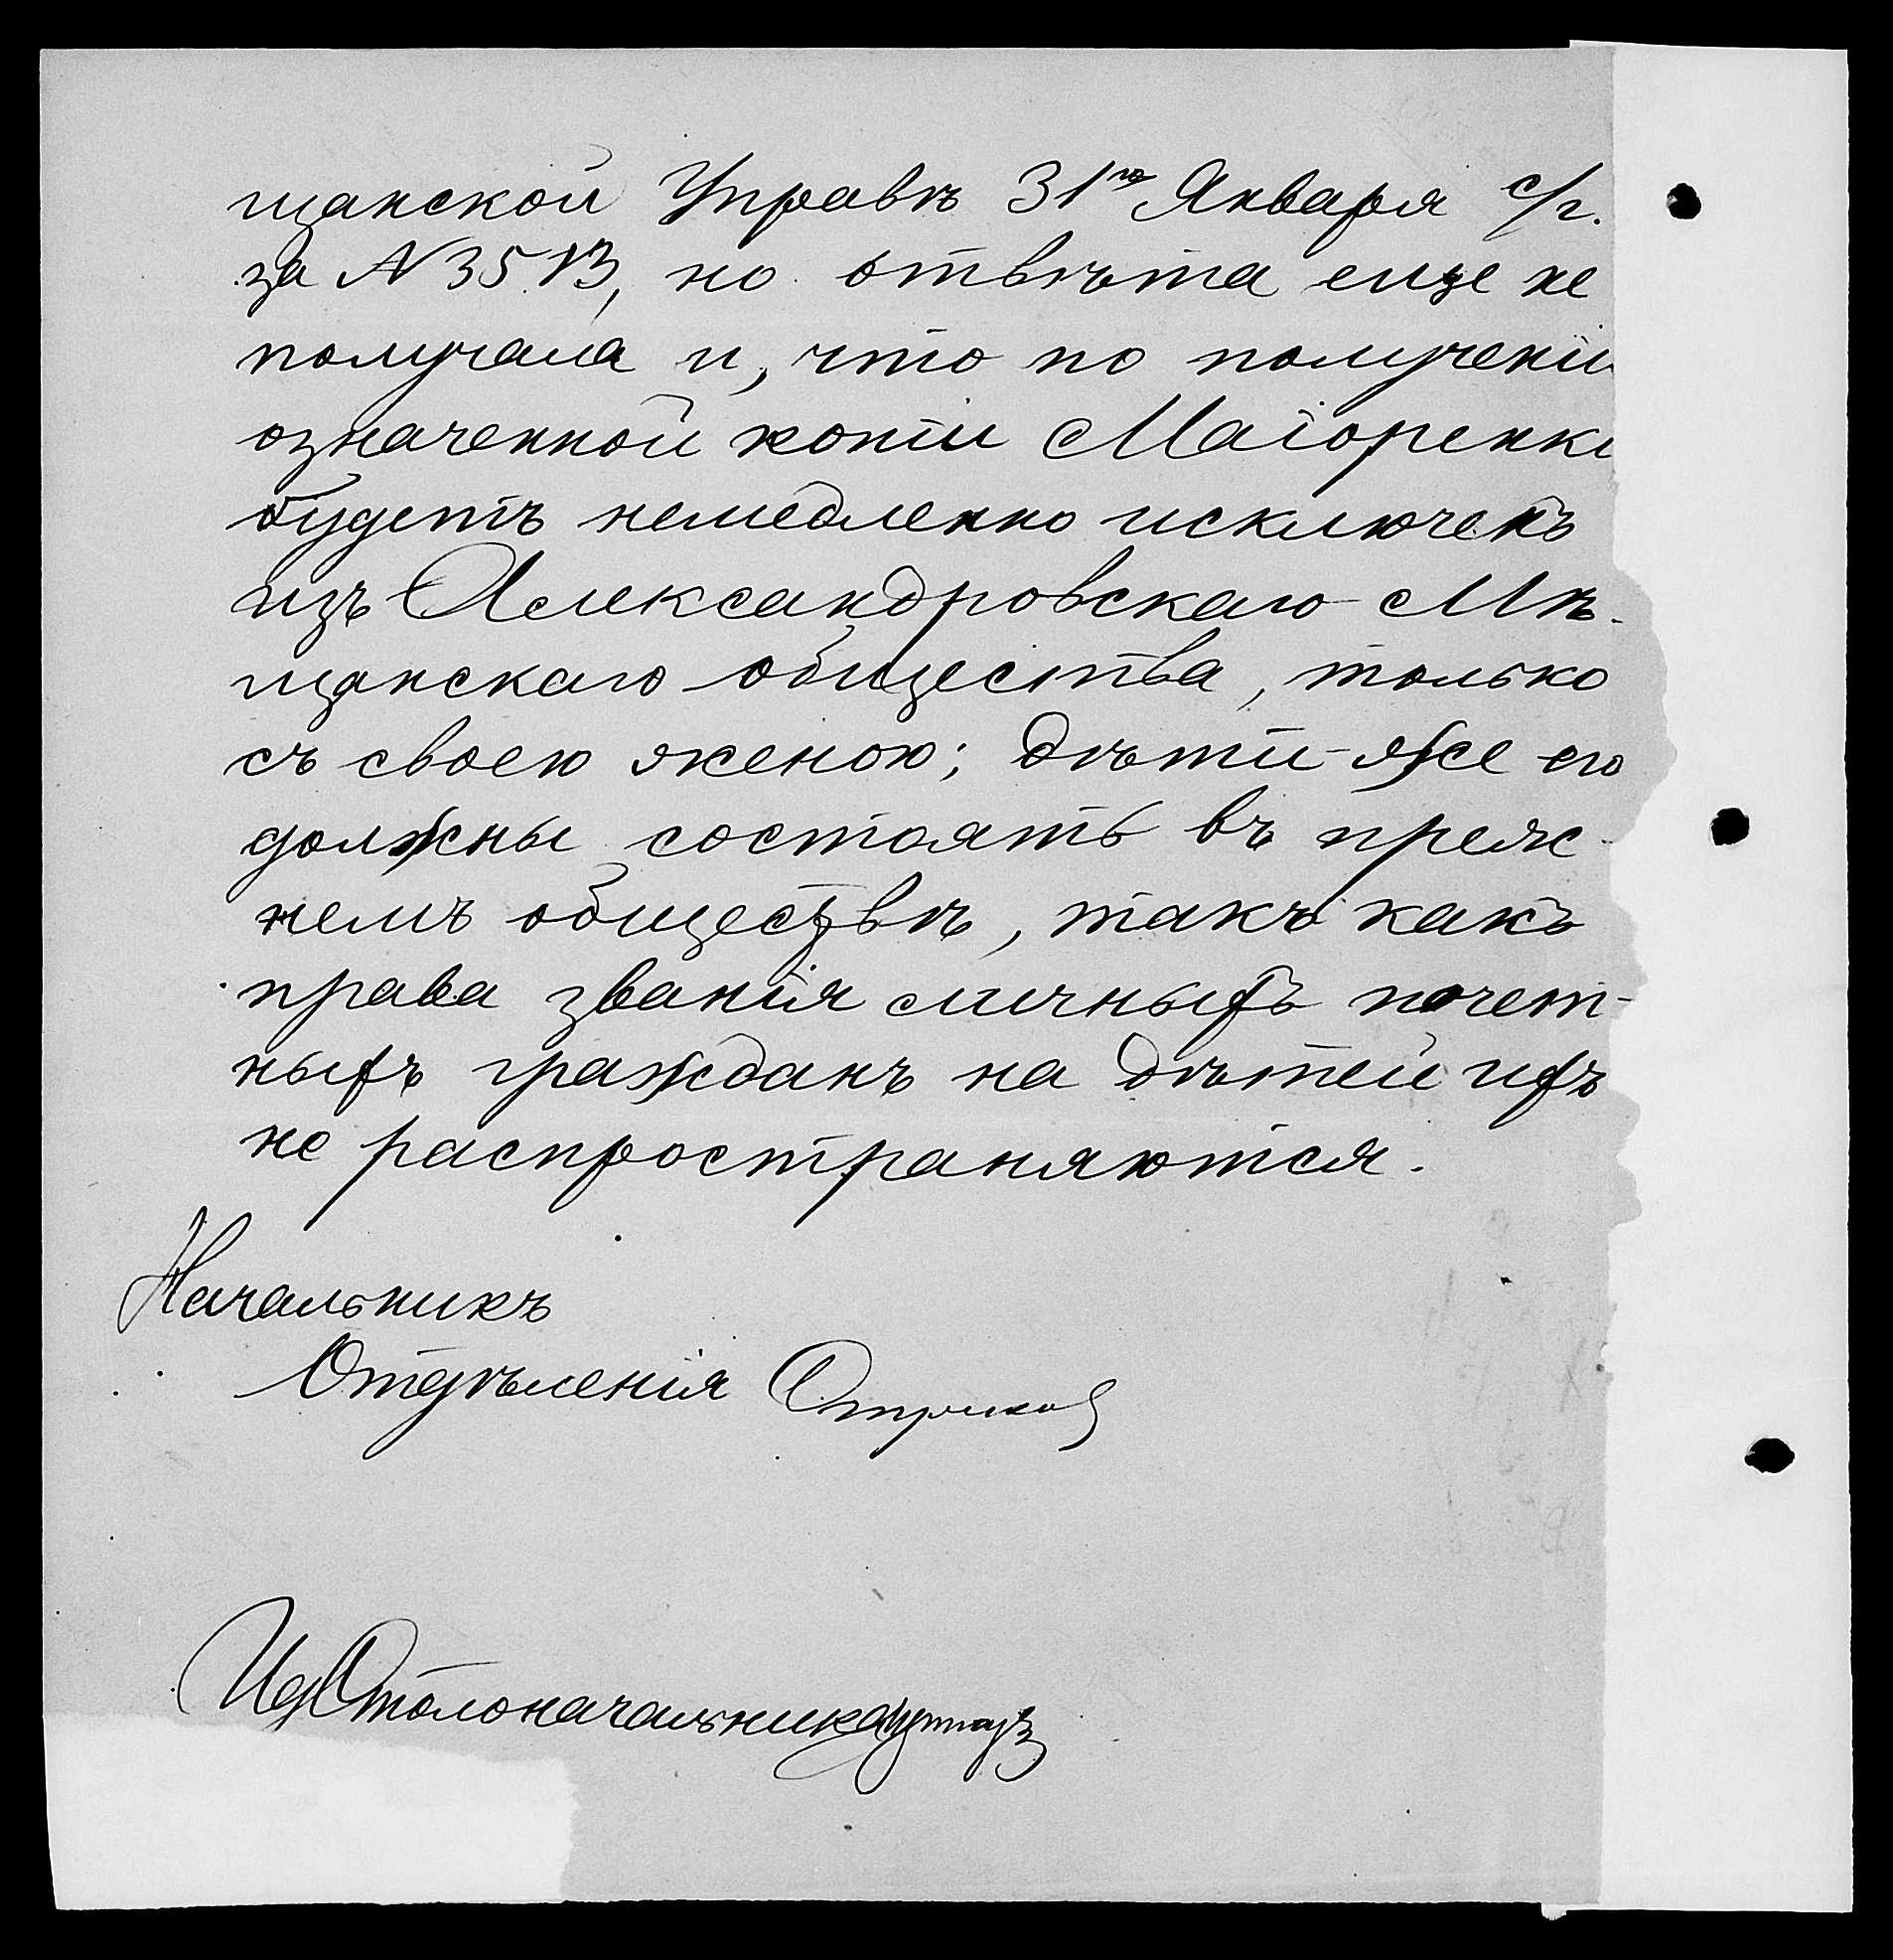 щанской Управѣ 31го Января с/г.
за N 3513, но отвѣта еще не
получала и, что по полученіи
означенной копіи Маіоренко
будетъ немедленно исключенъ
изъ Александровскаго Мѣ-
щанскаго общества, только
съ своею женою; дѣти-же его
должны состоять въ преж-
немъ обществѣ, такъ какъ
права званія личныхъ почет-
ныхъ гражданъ на дѣтей ихъ
не распространяются.
Начальникъ
Отдѣленія
Ид Столоначальника